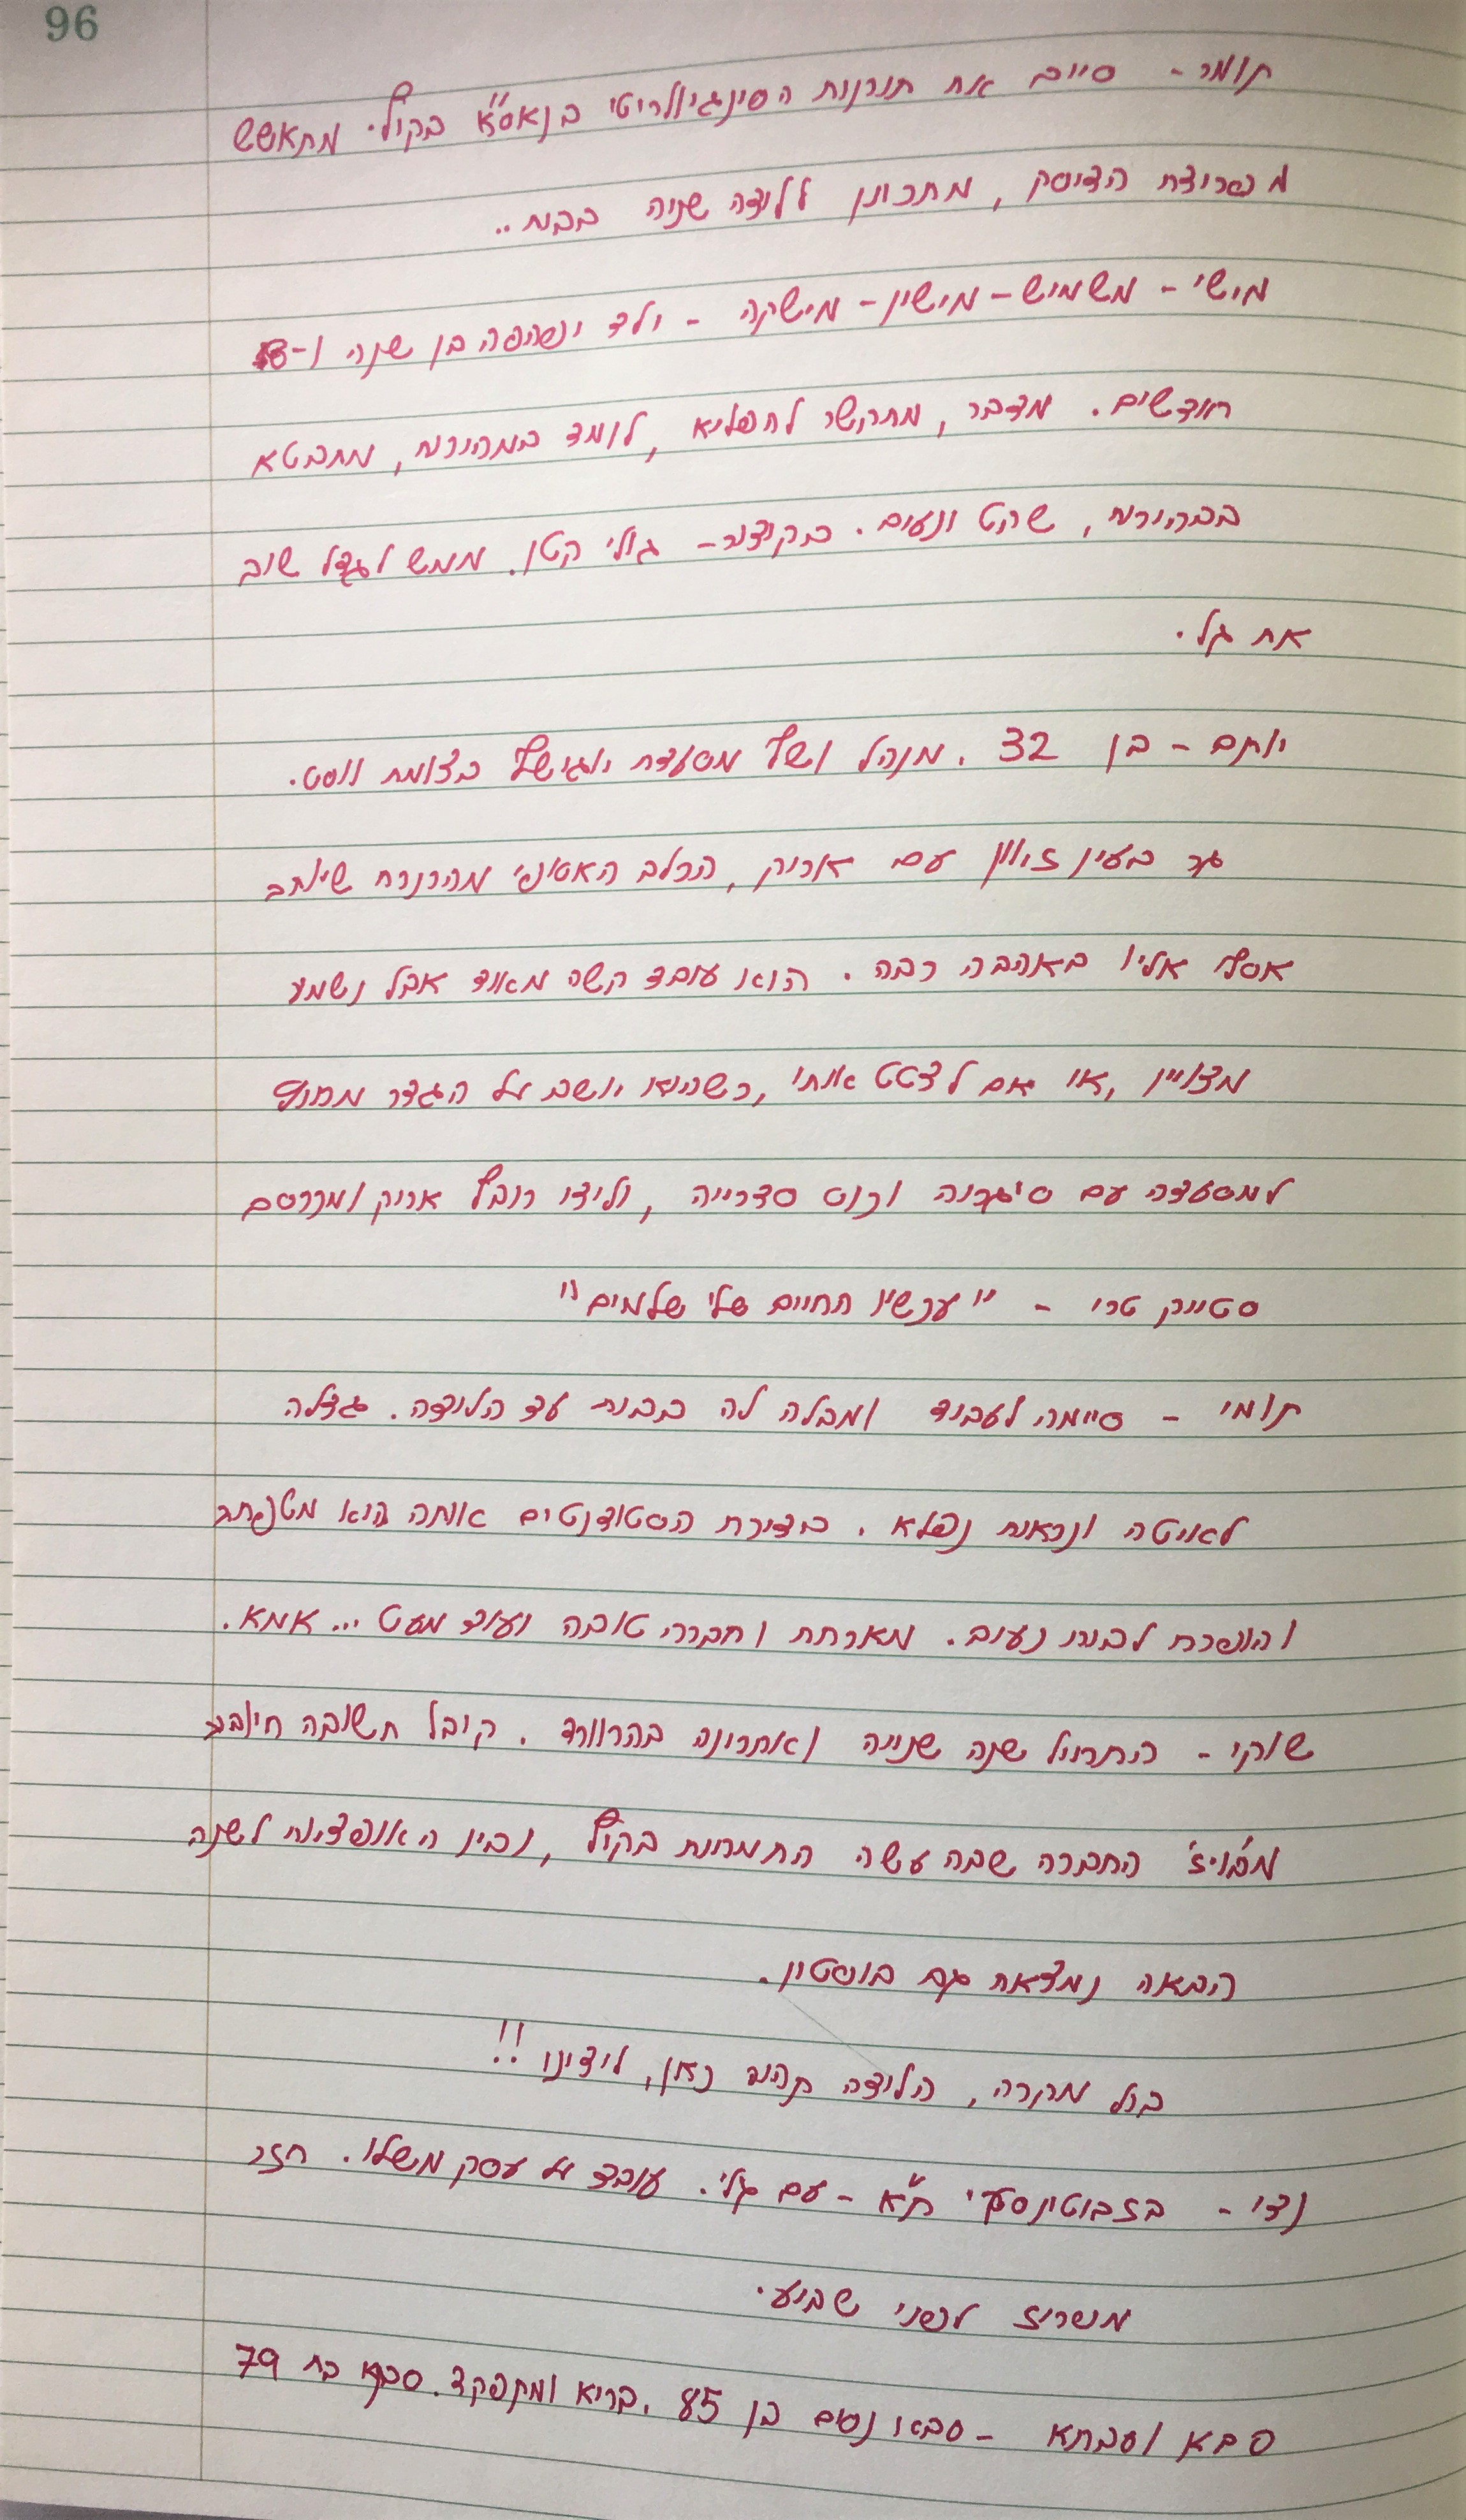 96
תומר - סיים את תורנות הסינגולריטי בנאס"א בקיץ. מתאושש
מפריצת הדיסק, מתכונן ללידה שניה בבית..
מישי - משמיש - מישין - מישקה - ילד יפהפה בן שנה ו-8
חודשים. מדבר, מתקשר להפליא, לומד במהירות, מתבטא
בבהירות, שקט ונעים. בקיצור - גולי קטן. ממש לגדל שוב
את גל.
יותם - בן 32. מנהל ושף מסעדת יוגישף בצומת ווסט.
גר בעין זיוון עם אריק, הכלב האסופי מהרחוב שיותם
אסף אליו באהבה רבה. הוא עובד קשה מאוד אבל נשמע
מצויין, או אם לצטט אותו, כשהוא יושב על הגדר מחוץ
למסעדה עם סיגריה וכוס סדרייה, ולידו רובץ אריק ומכרסם
סטייק טרי - "עכשיו החיים שלי שלמים"
תומי - סיימה לעבוד ומבלה לה בבית עד הלידה. גדלה
לאיטה ונראית נפלא. בדירת הסטודנטים אותה היא מטפחת
והופכת לביתי נעים. מארחת וחברה טובה ועוד מעט ... אמא.
שוקי - התחיל שנה שנייה ואחרונה בהרוורד. קיבל תשובה חיובית
החברה שבה עשה התמחות בקיץ, ובין האופציות לשנה
הבאה נמצאת גם בוסטון.
בכל מקרה, הלידה תהיה כאן, לידינו!!
נדי - בז'בוטינסקי ת"א - עם גלי. עובד על עסק משלו. חזר
לפני שבוע.
סבא וסבתא - סבא נסים בן 85. בריא ומתפקד. סבתא בת 79